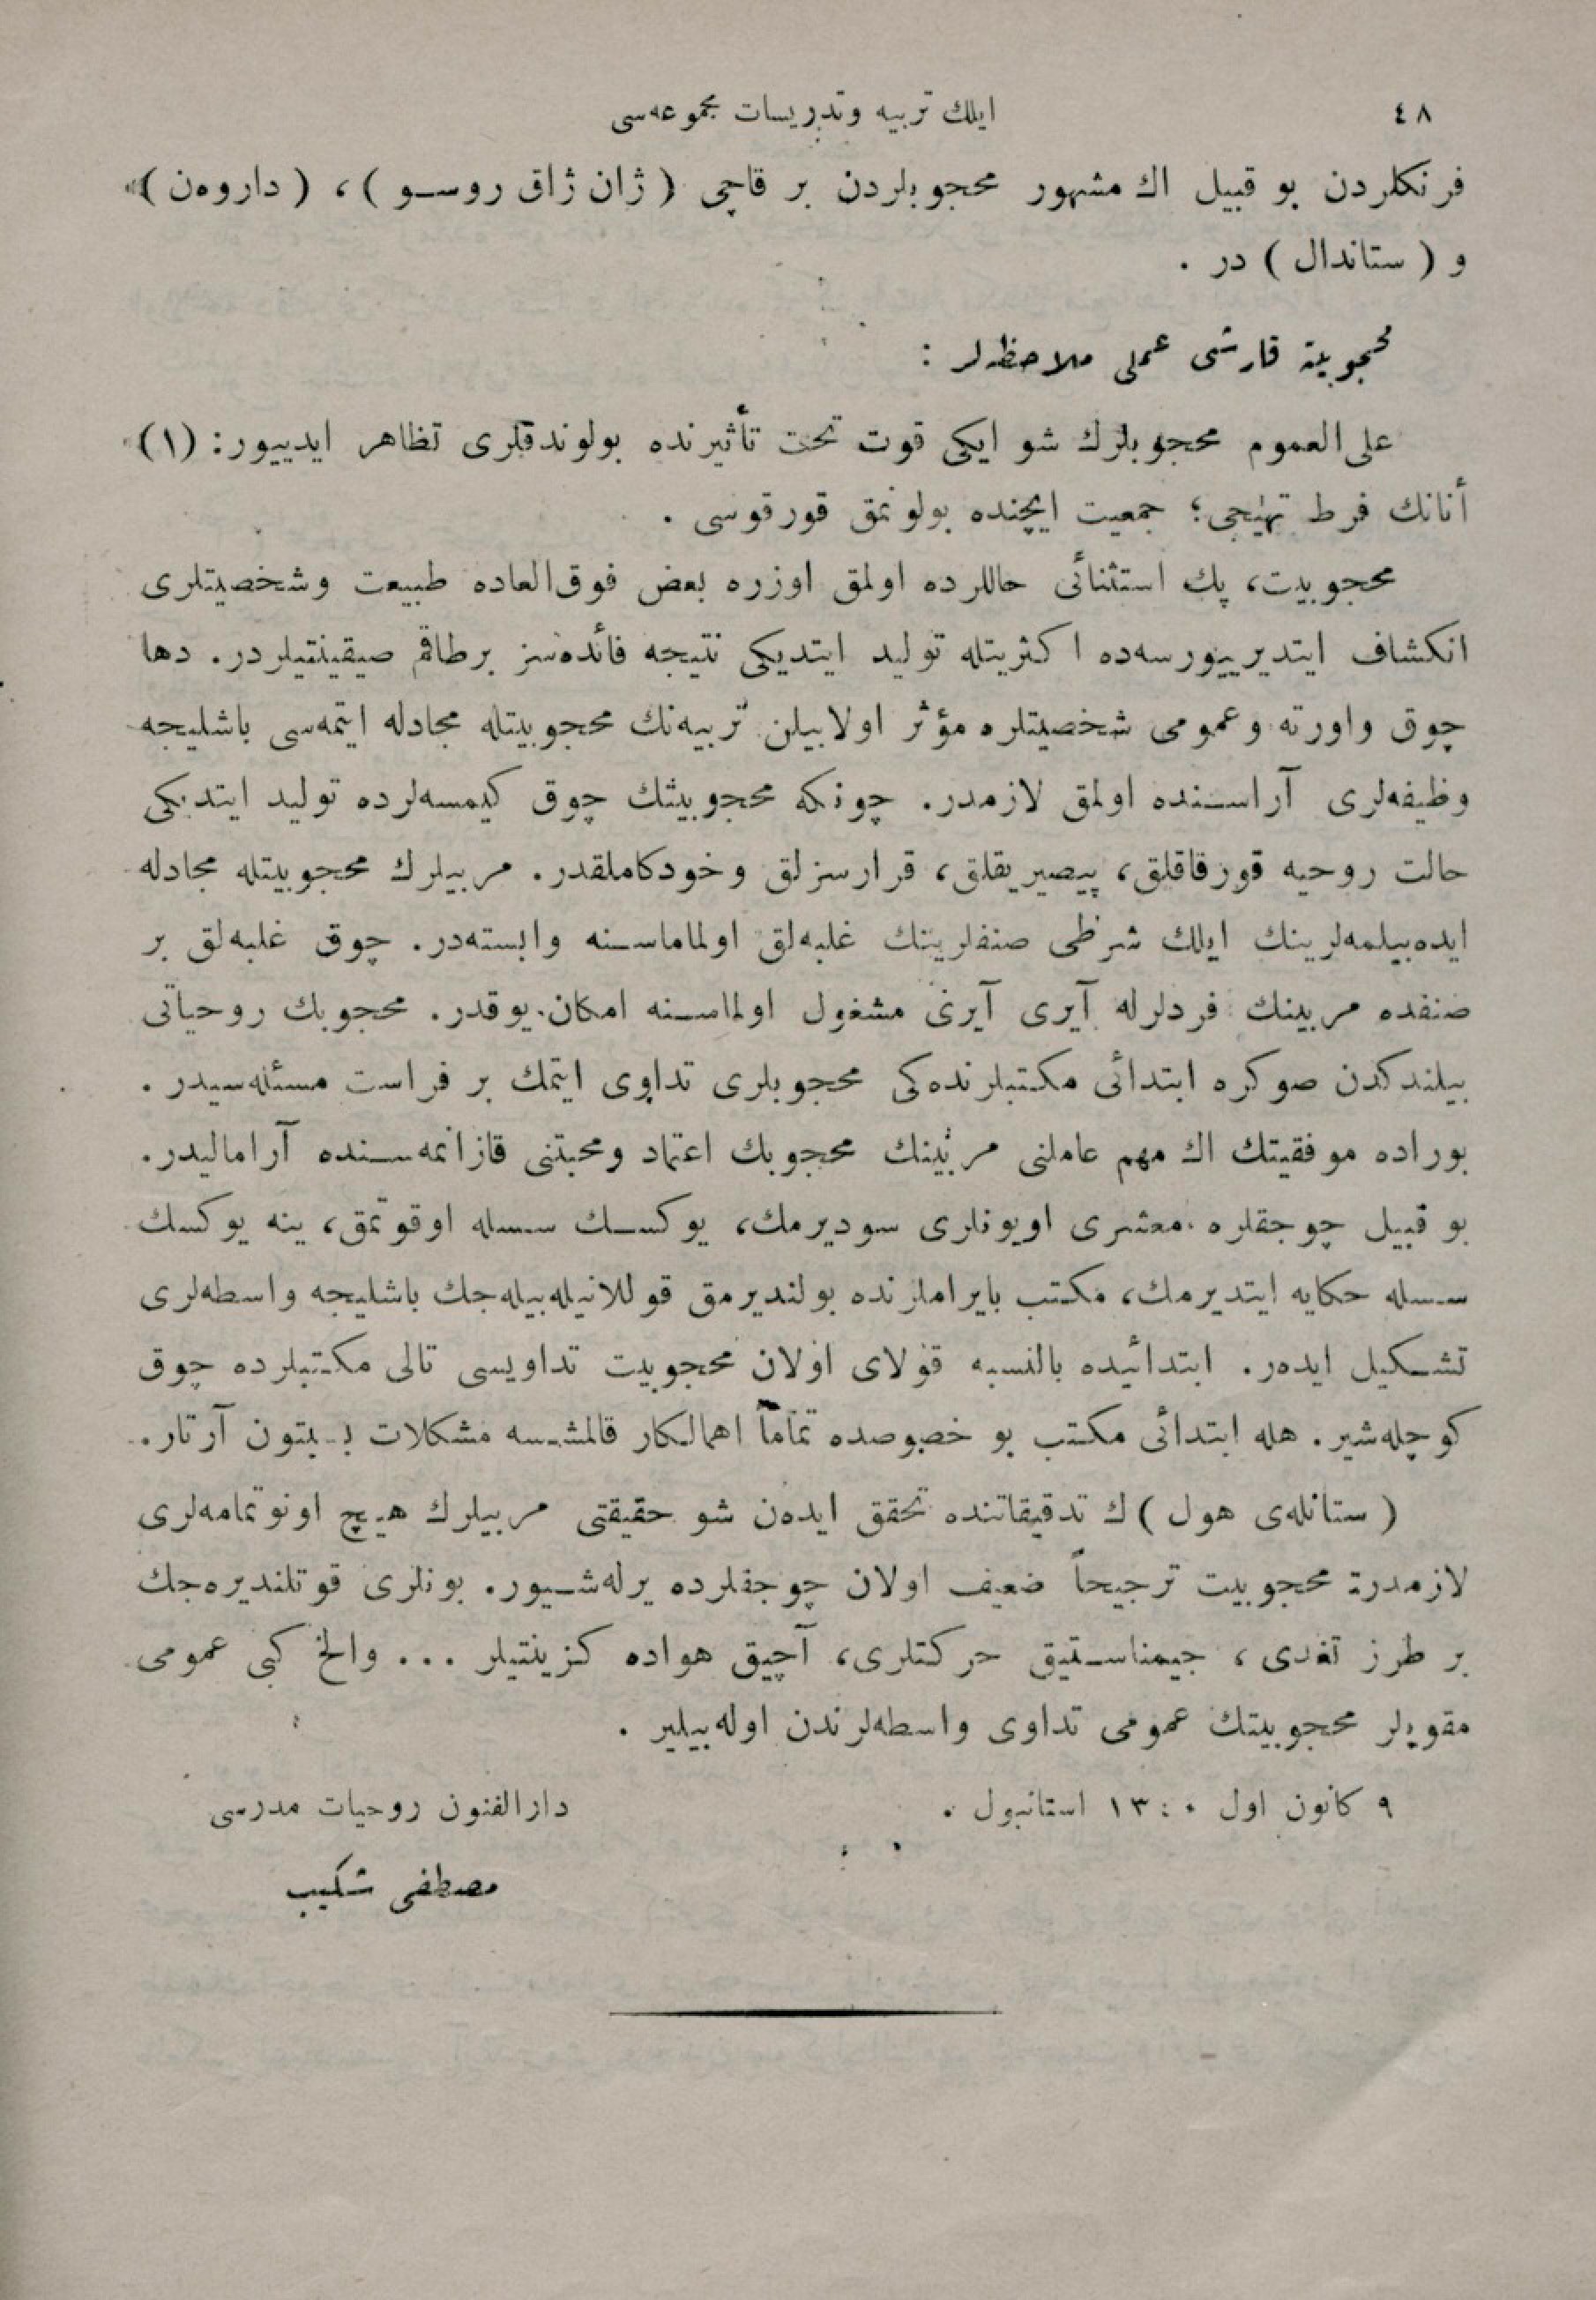 ٤٨
ايلك تربيه وتدريسات مجموعه‌سى
فرنكلردن بو قبيل اك مشهور محجوبلردن بر قاچى ( ژان ژاق روسو ) ، ( داروه‌ن )
و ( ستاندال ) در .
محجوبيته قارشى عملى ملاحظه‌لر :
على العموم محجوبلرك شو ايكى قوت تحت تأثيرنده بولوندقلرى تظاهر ايدييور : (١)
أنانك فرط تهيجى ؛ جمعيت ايچنده بولونمق قورقوسى .
محجوبيت ، پك استثنائى حاللرده اولمق اوزره بعض فوق‌العاده طبيعت وشخصيتلرى
انكشاف ايتديرييورسه‌ده اكثريتله توليد ايتديكى نتيجه فائده‌سز برطاقم صيقينتيلردر . دها
چوق واورته وعمومى شخصيتلره مؤثر اولابيلن تربيه‌نك محجوبيتله مجادله ايتمه‌سى باشليجه
وظيفه‌لرى آراسنده اولمق لازمدر . چونكه محجوبيتك چوق كيمسه‌لرده توليد ايتديكى
حالت روحيه قورقاقلق ، پيصيريقلق ، قرارسزلق وخودكاملقدر . مربيلرك محجوبيتله مجادله
ايده‌بيلمه‌لرينك ايلك شرطى صنفلرينك غلبه‌لق اولماماسنه وابسته‌در . چوق غلبه‌لق بر
صنفده مربينك فردلرله آيرى آيرى مشغول اولماسنه امكان يوقدر . محجوبك روحياتى
بيلندكدن صوكره ابتدائى مكتبلرنده‌كى محجوبلرى تداوى ايتمك بر فراست مسئله‌سيدر .
بوراده موفقيتك اك مهم عاملنى مربينك محجوبك اعتماد ومحبتنى قازانمه‌سنده آراماليدر .
بو قبيل چوجقلره معشرى اويونلرى سوديرمك ، يوكسك سسله اوقوتمق ، ينه يوكسك
سسله حكايه ايتديرمك ، مكتب بايراملرنده بولنديرمق قوللانيله‌بيله‌جك باشليجه واسطه‌لرى
تشكيل ايده‌ر . ابتدائيده بالنسبه قولاى اولان محجوبيت تداويسى تالى مكتبلرده چوق
كوچله‌شير . هله ابتدائى مكتب بو خصوصده تماماً اهمالكار قالمشسه مشكلات بـبتون آرتار .
( ستانله‌ى هول ) ك تدقيقاتنده تحقق ايده‌ن شو حقيقتى مربيلرك هيچ اونوتمامه‌لرى
لازمدر: محجوبيت ترجيحاً ضعيف اولان چوجقلرده يرله‌شيور . بونلرى قوتلنديره‌جك
بر طرز تغدى ، جيمناستيق حركتلرى ، آچيق هواده كزينتيلر ... والخ كبى عمومى
مقويلر محجوبيتك عمومى تداوى واسطه‌لرندن اوله‌بيلير .
٩ كانون اول ١٣٤٠ استانبول .
دارالفنون روحيات مدرسى
مصطفى شكيب